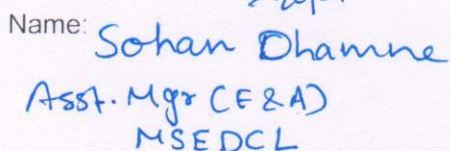 Name: Sohan Dhamne
Asst. Mgr (F & A)
MSEDCL